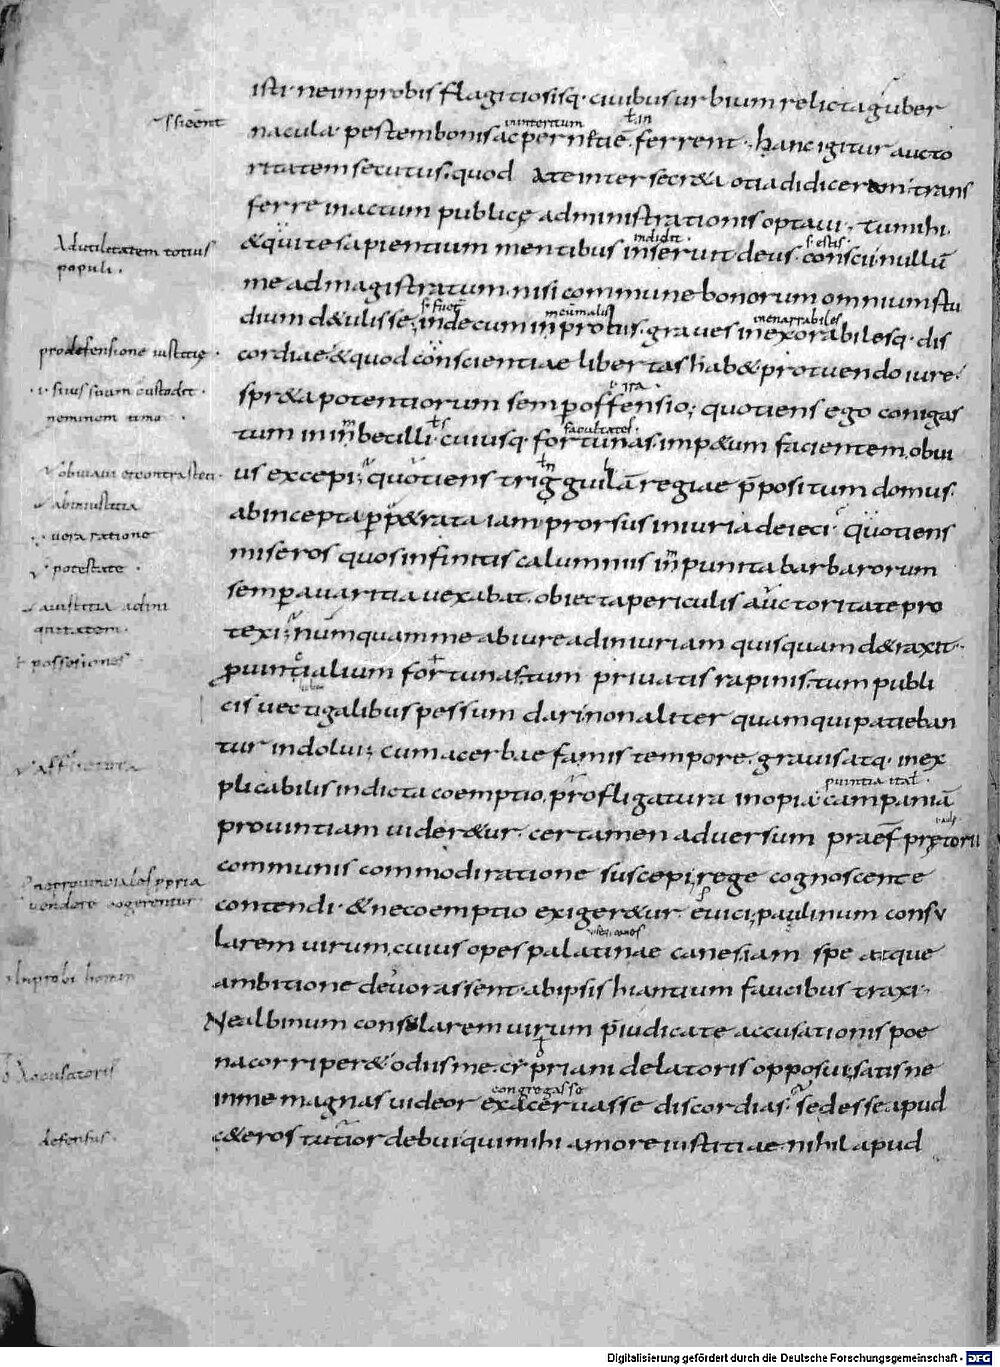 isti· ne improbis flagitiosisq· ciuibus urbium relicta guber
nacula· pestem bonis ac pernitiē· ferrent· hanc igitur aucto
ritatem secutus· quod A te inter secr&a otia didiceram trans
ferre in actum publicę administrationis optaui· tu mihi·
& qui te sapientium mentibus inseruit deus· conscii nullū
me ad magistratum· nisi commune bonorum omnium stu
dium d&ulisse; inde cum inprobis· graues inexorabilesq· dis
cordiae & quod conscientiae libertas hab& pro tuendo iure·
spr&a potentiorum semp offensio; quotiens ego conigas
tum in inbecilli· cuiusq· fortunas· imp&um facientem· obui
us excepi; quotiens trigguilā regiae p̄positum domus·
ab incepta p̱p&rata iam prorsus iniuria deieci· quotiens
miseros quos infinitis calumniis inpunita barbarorum
semp auaritia uexabat· obiecta periculis auctoritate pro
texi; numquam me ab iure ad iniuriam quisquam d&raxit·
prouintialium fortunas· tum priuatis rapinis· tum publi
cis uectigalibus pessum dari non aliter quam qui patieban
tur indolui; cum acerbae famis tempore· grauis atq· inex
plicabilis indicta coemptio profligatura inopia campaniā
prouintiam uider&ur· certamen aduersum praef prętorii
communis commodi ratione suscepi rege cognoscente
contendi· & ne coemptio exiger&ur euici; paulinum consu
larem uirum, cuius opes palatinae canes iam spe atque
ambitione deuorassent· ab ipsis hiantium faucibus traxi·
Ne albinum consularem uirum p̄iudicate accusationis poe
na corriper& odiis me cypriani delatoris opposui, satis ne
in me magnas uideor exaceruasse discordias· sed esse apud
c&eros tutior debui qui mihi amore iustitiae nihil apud
Ad utilitatem totius
populi·
indidit·
s· estis·
inenarrabiles
pro defensione iustitię·
suum custodit·
neminem timo
facultates·
ab iniustitia
uera ratione
potestate·
a iustitia ad ini
quitatem·
possessiones
uendere cogerentur
Inprobi homin
Accusatoris
congregasse
defensus·
Digitalisierung gefördert durch die Deutsche Forschungsgemeinschaft - DFG